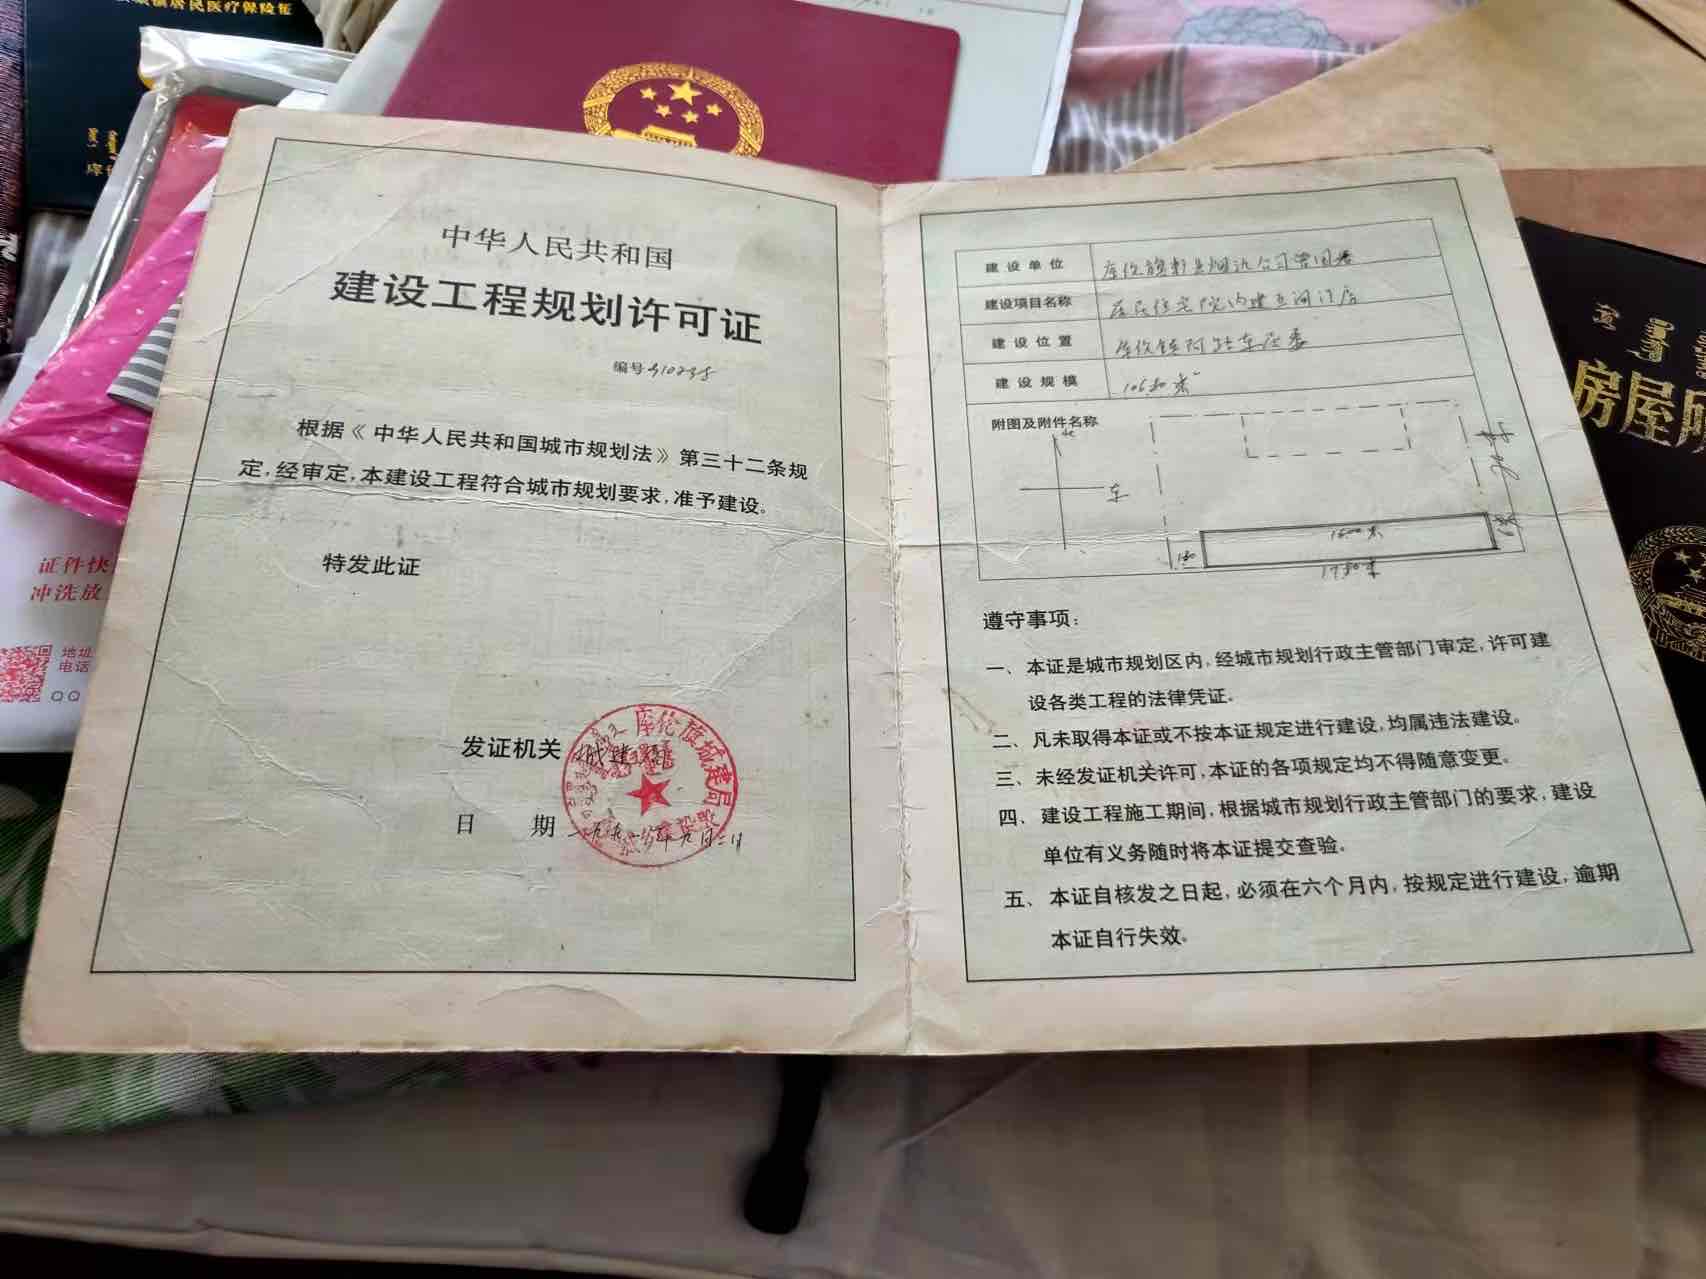 镇居民医疗保险证
中华人民共和国
建设工程规划许可证
编号 910235
根据《中华人民共和国城市规划法》第三十二条规
定,经审定,本建设工程符合城市规划要求,准予建设。
特发此证
发证机关 城建局
库伦旗城建局
日 期
九月二日
建设单位
建设项目名称 居民住宅院内建五间门房
建设位置
建设规模
附图及附件名称
北
东
1500米
1780米
遵守事项:
一、本证是城市规划区内,经城市规划行政主管部门审定,许可建
设各类工程的法律凭证。
二、凡未取得本证或不按本证规定进行建设,均属违法建设。
三、未经发证机关许可,本证的各项规定均不得随意变更。
四、建设工程施工期间,根据城市规划行政主管部门的要求,建设
单位有义务随时将本证提交查验。
五、本证自核发之日起,必须在六个月内,按规定进行建设,逾期
本证自行失效。
房屋所
证件快
冲洗放
地址
电话
QQ